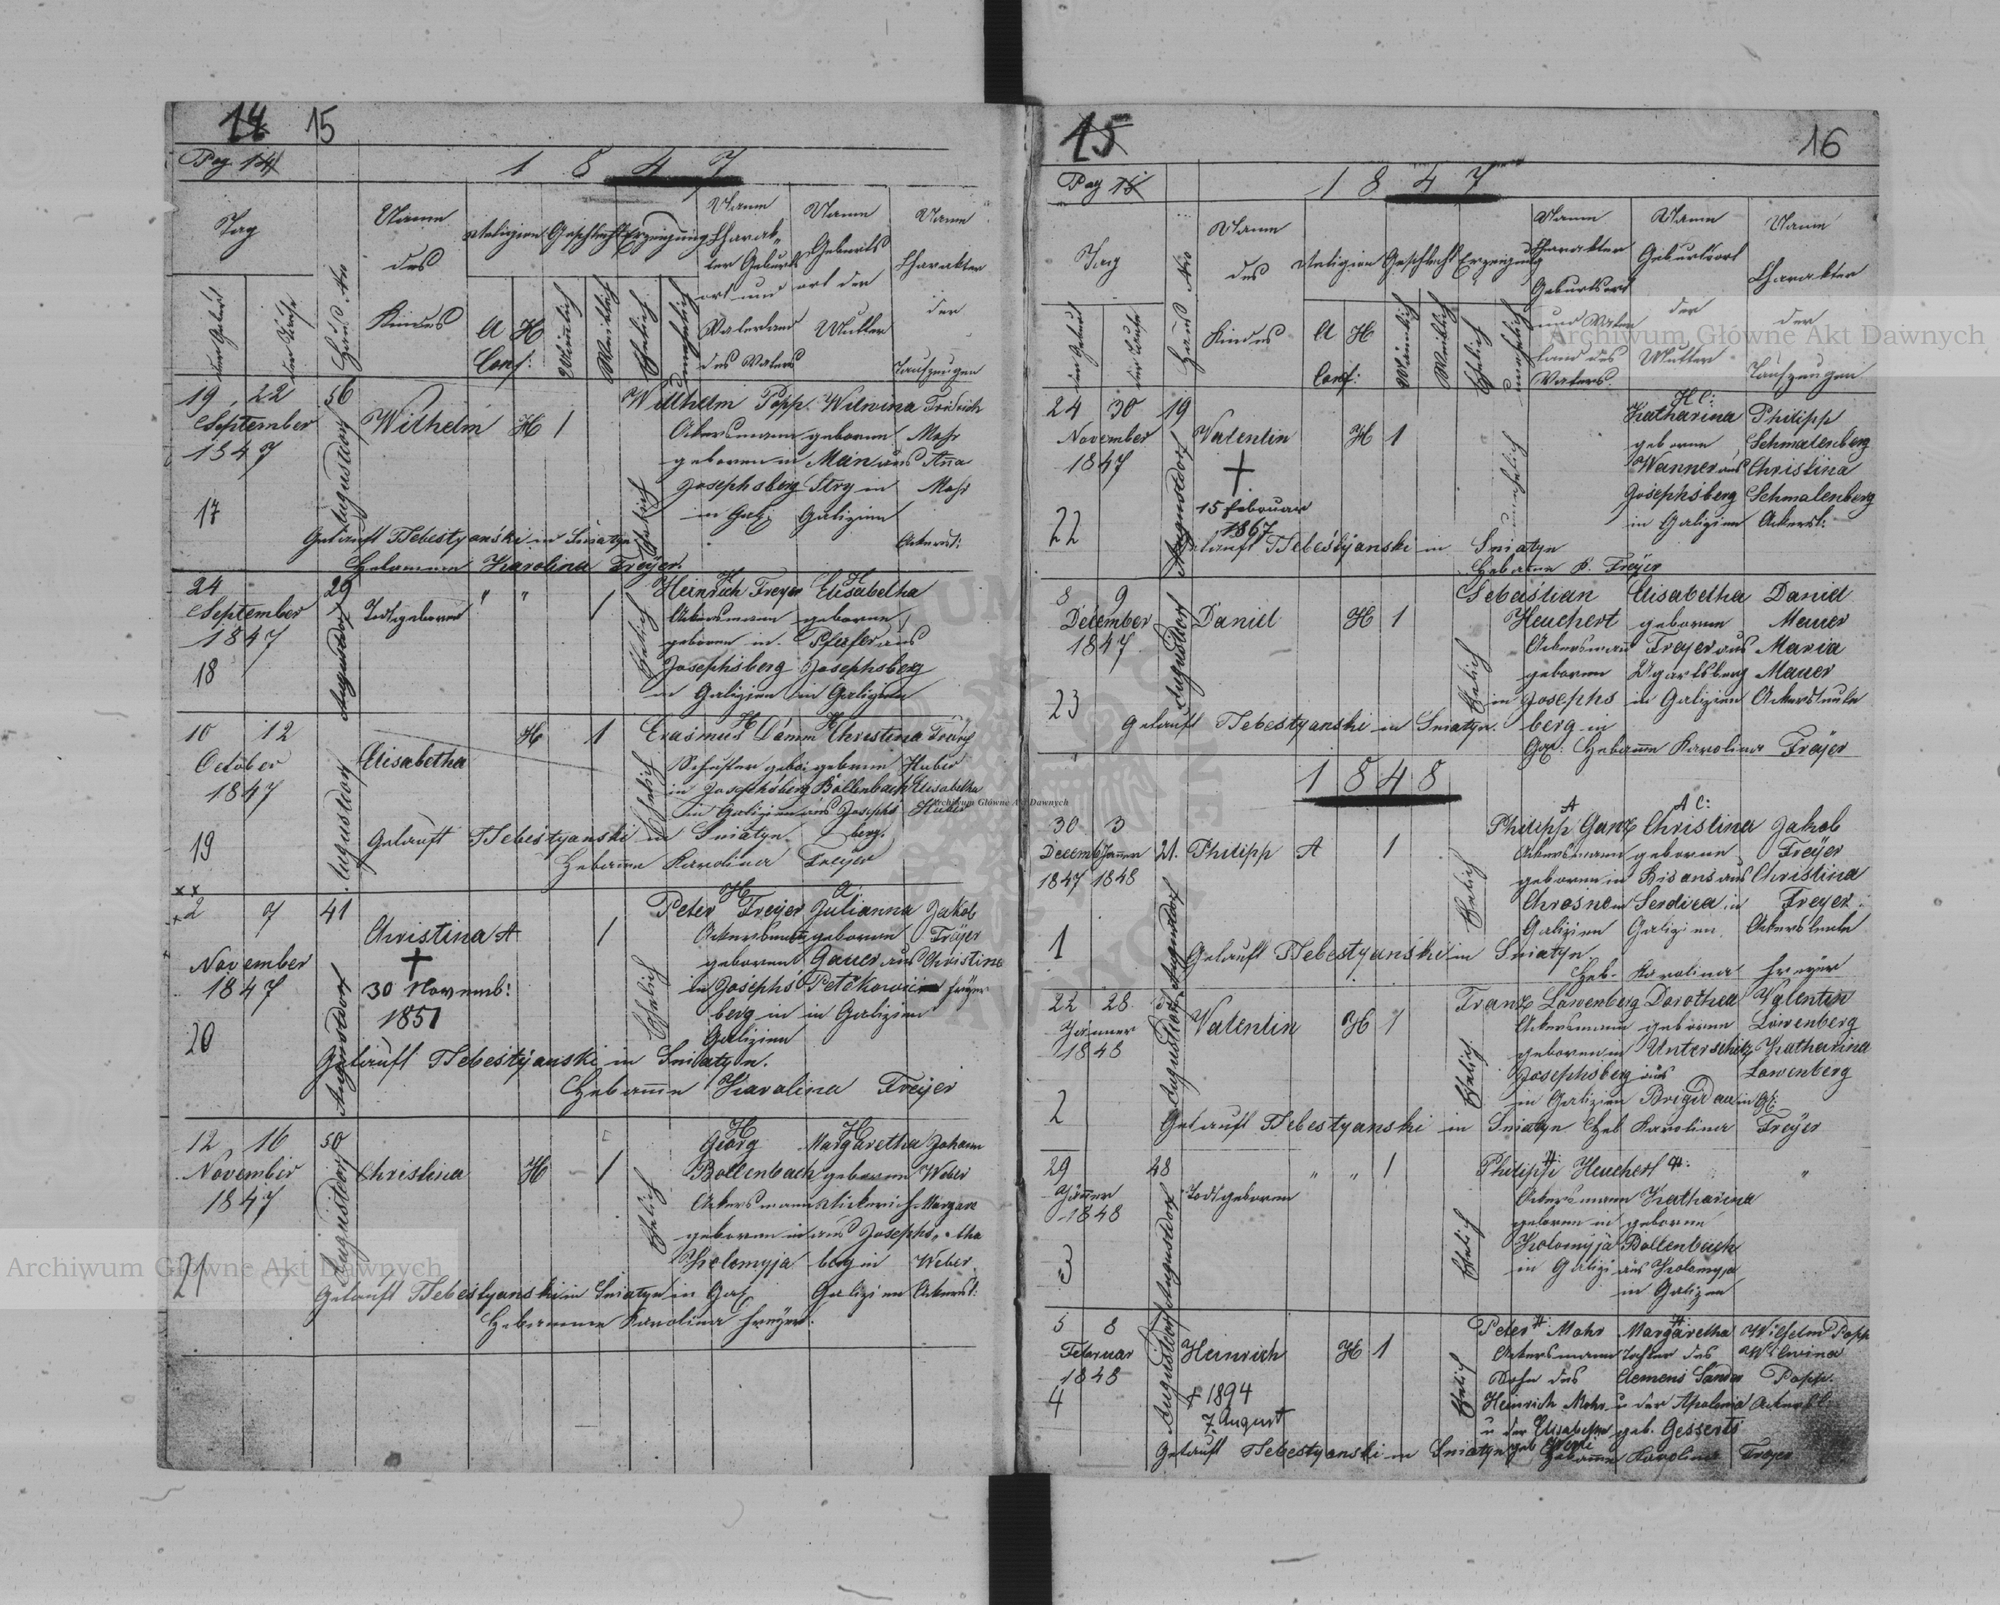 14 15
Pag. 14
1 8 4 7
Tag
der Geburt
der Taufe
Haus Nro
Name des Kindes
Religion
A H
Conf:
Geschlecht
Männlich
Weiblich
Erzeugung
Ehelich
Unehelich
Name Charakter Geburtsort und Vaterland des Vaters
Name Geburtsort der Mutter
Name Charakter der Taufzeugen
19 22 56
September
1847
17
Augustdorf
Wilhelm H 1
Ehelich
Willhelm Popp Wilwina Fridrich
Ackersmann geboren Mohr
geboren in Mein aus Anna
Josephsberg Stry in Mohr
in Gali: Galizien
Ackerst:
Getauft Tebestyanski in Sniatyn
Hebamme Karolina Freyer.
24 29
September
1847
18
Augustdorf
Todtgeboren " " 1
Ehelich
H H
Heinrich Freyer Elisabetha
Ackersmann geboren
geboren in Pfeifer aus
Josephsberg Josephsberg
in Galizien in Galizien
10 12
October
1847
19
Augustdorf
Elisabetha H 1
Ehelich
H H
Erasmus Damm Christina
Schuster gebo: geboren Huber
in Josephsberg Bollenbach Elisabetha
in Galizien aus Josephs Huber
berg.
Getauft Tebestyanski in Sniatyn.
Hebamme Karolina Freyer
2 7 41
November
1847
20
Augustdorf
Christina A 1
+
30 Novemb:
1851
Ehelich
H A
Peter Freyer Julianna Jakob
Ackersmann geboren Freyer
geboren Gauer aus Christina
in Josephs Petekowi Freyer
berg in in Galizien
Galizien
Getauft Tebestyanski in Sniatyn.
Hebamme Karolina Freyer
12 16 50
November
1847
21
Augustdorf
Christina H 1
Ehelich
H H
Georg Margaretha Johann
Bollenbach geboren Weber
Ackersmann Margare
geboren in aus Josephs tha
Kolomyja berg in Weber
in Gal. Galizien Ackerst:
Getauft Tebestyanski in Sniatyn
Hebamme Karolina Freyer.
15 16
Pag 15
1 8 4 7
Tag
der Geburt
der Taufe
Haus Nro
Name des Kindes
Religion
A H
Conf:
Geschlecht
Männlich
Weiblich
Erzeugung
Ehelich
Unehelich
Name Charakter Geburtsort und Vaterland des Vaters
Name Geburtsort der Mutter
Name Charakter der Taufzeugen
24 30 19
November
1847
22
Augustdorf
Valentin H 1
+
15 Februar
1867
Unehelich
H C:
Katharina Philipp
geboren Schmalenberg
Wanner aus Christina
Josephsberg Schmalenberg
in Galizien Ackerst:
Getauft Tebestyanski in Sniatyn
Hebamme K. Freyer
8 9
December
1847
23
Augustdorf
Daniel H 1
Ehelich
Sebastian Elisabetha Daniel
Heuchert geboren Mauer
Ackersmann Freyer aus Maria
geboren Ugartsberg Mauer
in Josephs in Galizien Ackersleute
berg in
Gal: Hebamme Karolina Freyer
Getauft Tebestyanski in Sniatyn.
1 8 4 8
30 3
Decemb Jänner 21.
1847 1848
1
Augustdorf
Philipp A 1
Ehelich
A A C:
Philipp Ganz Christina Jakob
Ackersmann geborne Freyer
geboren in Bisans aus Christina
Chrosno in Serdica in Freyer
Galizien Galizien Ackersleute
Getauft Tebestyanski in Sniatyn
Heb. Karolina Freyer
22 28
Jänner
1848
2
Augustdorf
Valentin H 1
Ehelich
Franz Löwenberg Dorothea Valentin
Ackersmann geboren Löwenberg
geboren in Unterschütz Katharina
Josephsberg aus Löwenberg
in Galizien Brigidau in G:
Getauft Tebestyanski in Sniatyn Heb Karolina Freyer
29 28
Jänner
1848
3
Augustdorf
Todtgeboren " " 1
Ehelich
Philipp Heuchert
Ackersmann Katharina
geboren in geboren
Kolomyja Bollenbach
in Galizi aus Kolomyja
in Galizien
5 8
Februar
1848
4
Augustdorf
Heinrich H 1
+ 1894
7. August
Ehelich
Peter Mohr Margaretha Wilhelm Popp
Ackersmann Tochter des Wilwina
Sohn des Clemens Sander Popp.
Heinrich Mohr u der Apolonia Ackersl:
u der Elisabetha geb. Gesserts
Getauft Tebestyanski in Sniatyn Hebamme Karolina Freyer
Archiwum Główne Akt Dawnych
Archiwum Główne Akt Dawnych
Archiwum Główne Akt Dawnych